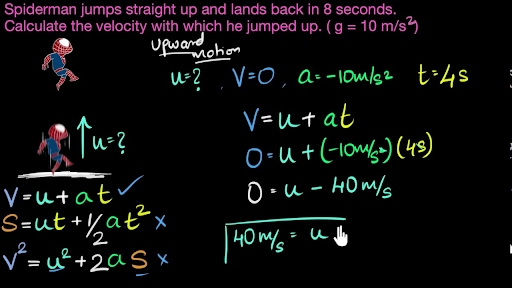 Spiderman jumps straight up and lands back in 8 seconds.
Calculate the velocity with which he jumped up. ( g = 10 m/s²)
upward motion
u=? , V=0 , a=-10m/s² t=4s
V= u + at
u=?
0= u + (-10m/s²)(4s)
0 = u - 40m/s
V= u + at ✓
S= ut + 1/2 at² ×
40m/s = u
V² = u² + 2aS ×